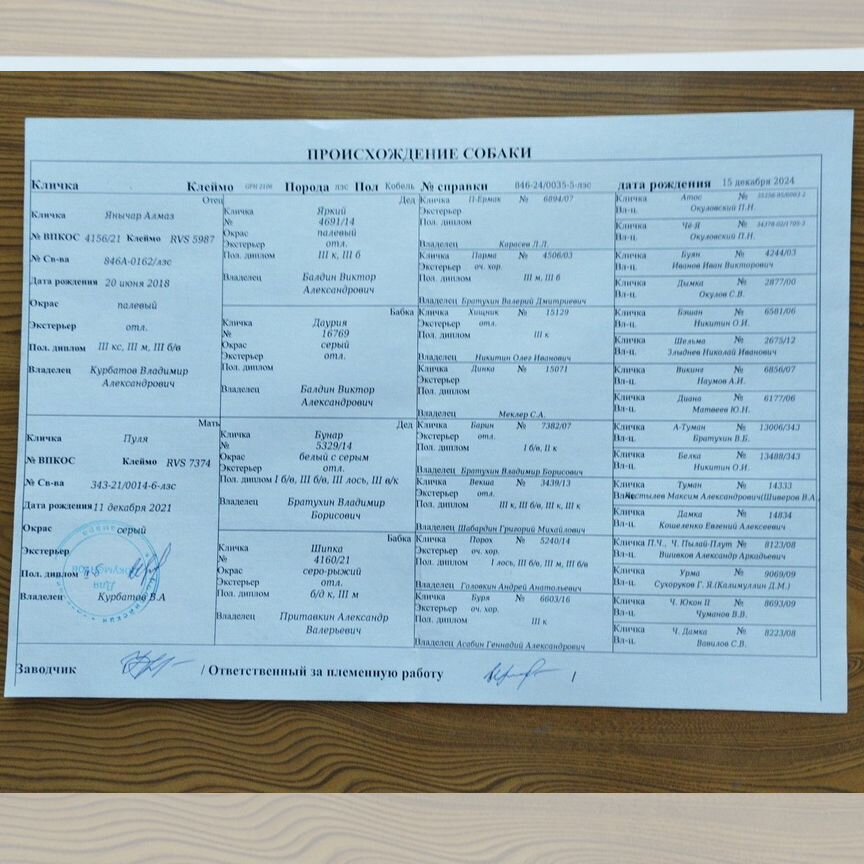 ПРОИСХОЖДЕНИЕ СОБАКИ
Кличка Клеймо GPH 2106 Порода лзс Пол Кобель № справки 846-24/0035-5-лзс дата рождения 15 декабря 2024
Отец
Кличка Янычар Алмаз
№ ВПКОС 4156/21 Клеймо RVS 5987
№ Св-ва 846А-0162/лзс
Дата рождения 20 июня 2018
Окрас палевый
Экстерьер отл.
Пол. диплом III кс, III м, III б/в
Владелец Курбатов Владимир
Александрович
Мать
Кличка Пуля
№ ВПКОС Клеймо RVS 7374
№ Св-ва 343-21/0014-6-лзс
Дата рождения 11 декабря 2021
Окрас серый
Экстерьер
Пол. диплом
Владелец Курбатов В.А
Для документов
Дед
Кличка Яркий
№ 4691/14
Окрас палевый
Экстерьер отл.
Пол. диплом III к, III б
Владелец Балдин Виктор
Александрович
Бабка
Кличка Даурия
№ 16769
Окрас серый
Экстерьер отл.
Пол. диплом
Владелец Балдин Виктор
Александрович
Дед
Кличка Бунар
№ 5329/14
Окрас белый с серым
Экстерьер отл.
Пол. диплом I б/в, III б/в, III лось, III в/к
Владелец Братухин Владимир
Борисович
Бабка
Кличка Шипка
№ 4160/21
Окрас серо-рыжий
Экстерьер отл.
Пол. диплом б/д к, III м
Владелец Притавкин Александр
Валерьевич
Кличка П-Ермак № 6894/07
Экстерьер
Пол. диплом
Владелец Карасев Л.Л.
Кличка Парма № 4506/03
Экстерьер оч. хор.
Пол. диплом III м, III б
Владелец Братухин Валерий Дмитриевич
Кличка Хищник № 15129
Экстерьер отл.
Пол. диплом III к
Владелец Никитин Олег Иванович
Кличка Динка № 15071
Экстерьер
Пол. диплом
Владелец Меклер С.А.
Кличка Барин № 7382/07
Экстерьер отл.
Пол. диплом I б/в, II к
Владелец Братухин Владимир Борисович
Кличка Векша № 3439/13
Экстерьер отл.
Пол. диплом III к, III б/в, III к, III к
Владелец Шабардин Григорий Михайлович
Кличка Порох № 5240/14
Экстерьер оч. хор.
Пол. диплом I лось, III б/в, III м, III б/в
Владелец Головкин Андрей Анатольевич
Кличка Буря № 6603/16
Экстерьер оч. хор.
Пол. диплом III к
Владелец Асабин Геннадий Александрович
Кличка Атос №
Вл-ц. Окуловский П.Н.
Кличка Чё-Я №
Вл-ц. Окуловский П.Н.
Кличка Буян № 4244/03
Вл-ц. Иванов Иван Викторович
Кличка Дымка № 2877/00
Вл-ц. Окулов С.В.
Кличка Бэшан № 6581/06
Вл-ц. Никитин О.И.
Кличка Шельма № 2675/12
Вл-ц. Злыднев Николай Иванович
Кличка Викинг № 6856/07
Вл-ц. Наумов А.И.
Кличка Диана № 6177/06
Вл-ц. Матвеев Ю.Н.
Кличка А-Туман № 13006/343
Вл-ц. Братухин В.Б.
Кличка Белка № 13488/343
Вл-ц. Никитин О.И.
Кличка Туман № 14333
Максим Александрович(Шиверов В.А.
Кличка Дамка № 14834
Вл-ц. Кошеленко Евгений Алексеевич
Кличка П.Ч., Ч. Пылай-Плут № 8123/08
Вл-ц. Вшивков Александр Аркадьевич
Кличка Урма № 9069/09
Вл-ц. Сухоруков Г. Я.(Калимуллин Д.М.)
Кличка Ч. Юкон II № 8693/09
Вл-ц. Чуманов В.В.
Кличка Ч. Дамка № 8223/08
Вл-ц. Вавилов С.В.
Заводчик / Ответственный за племенную работу /